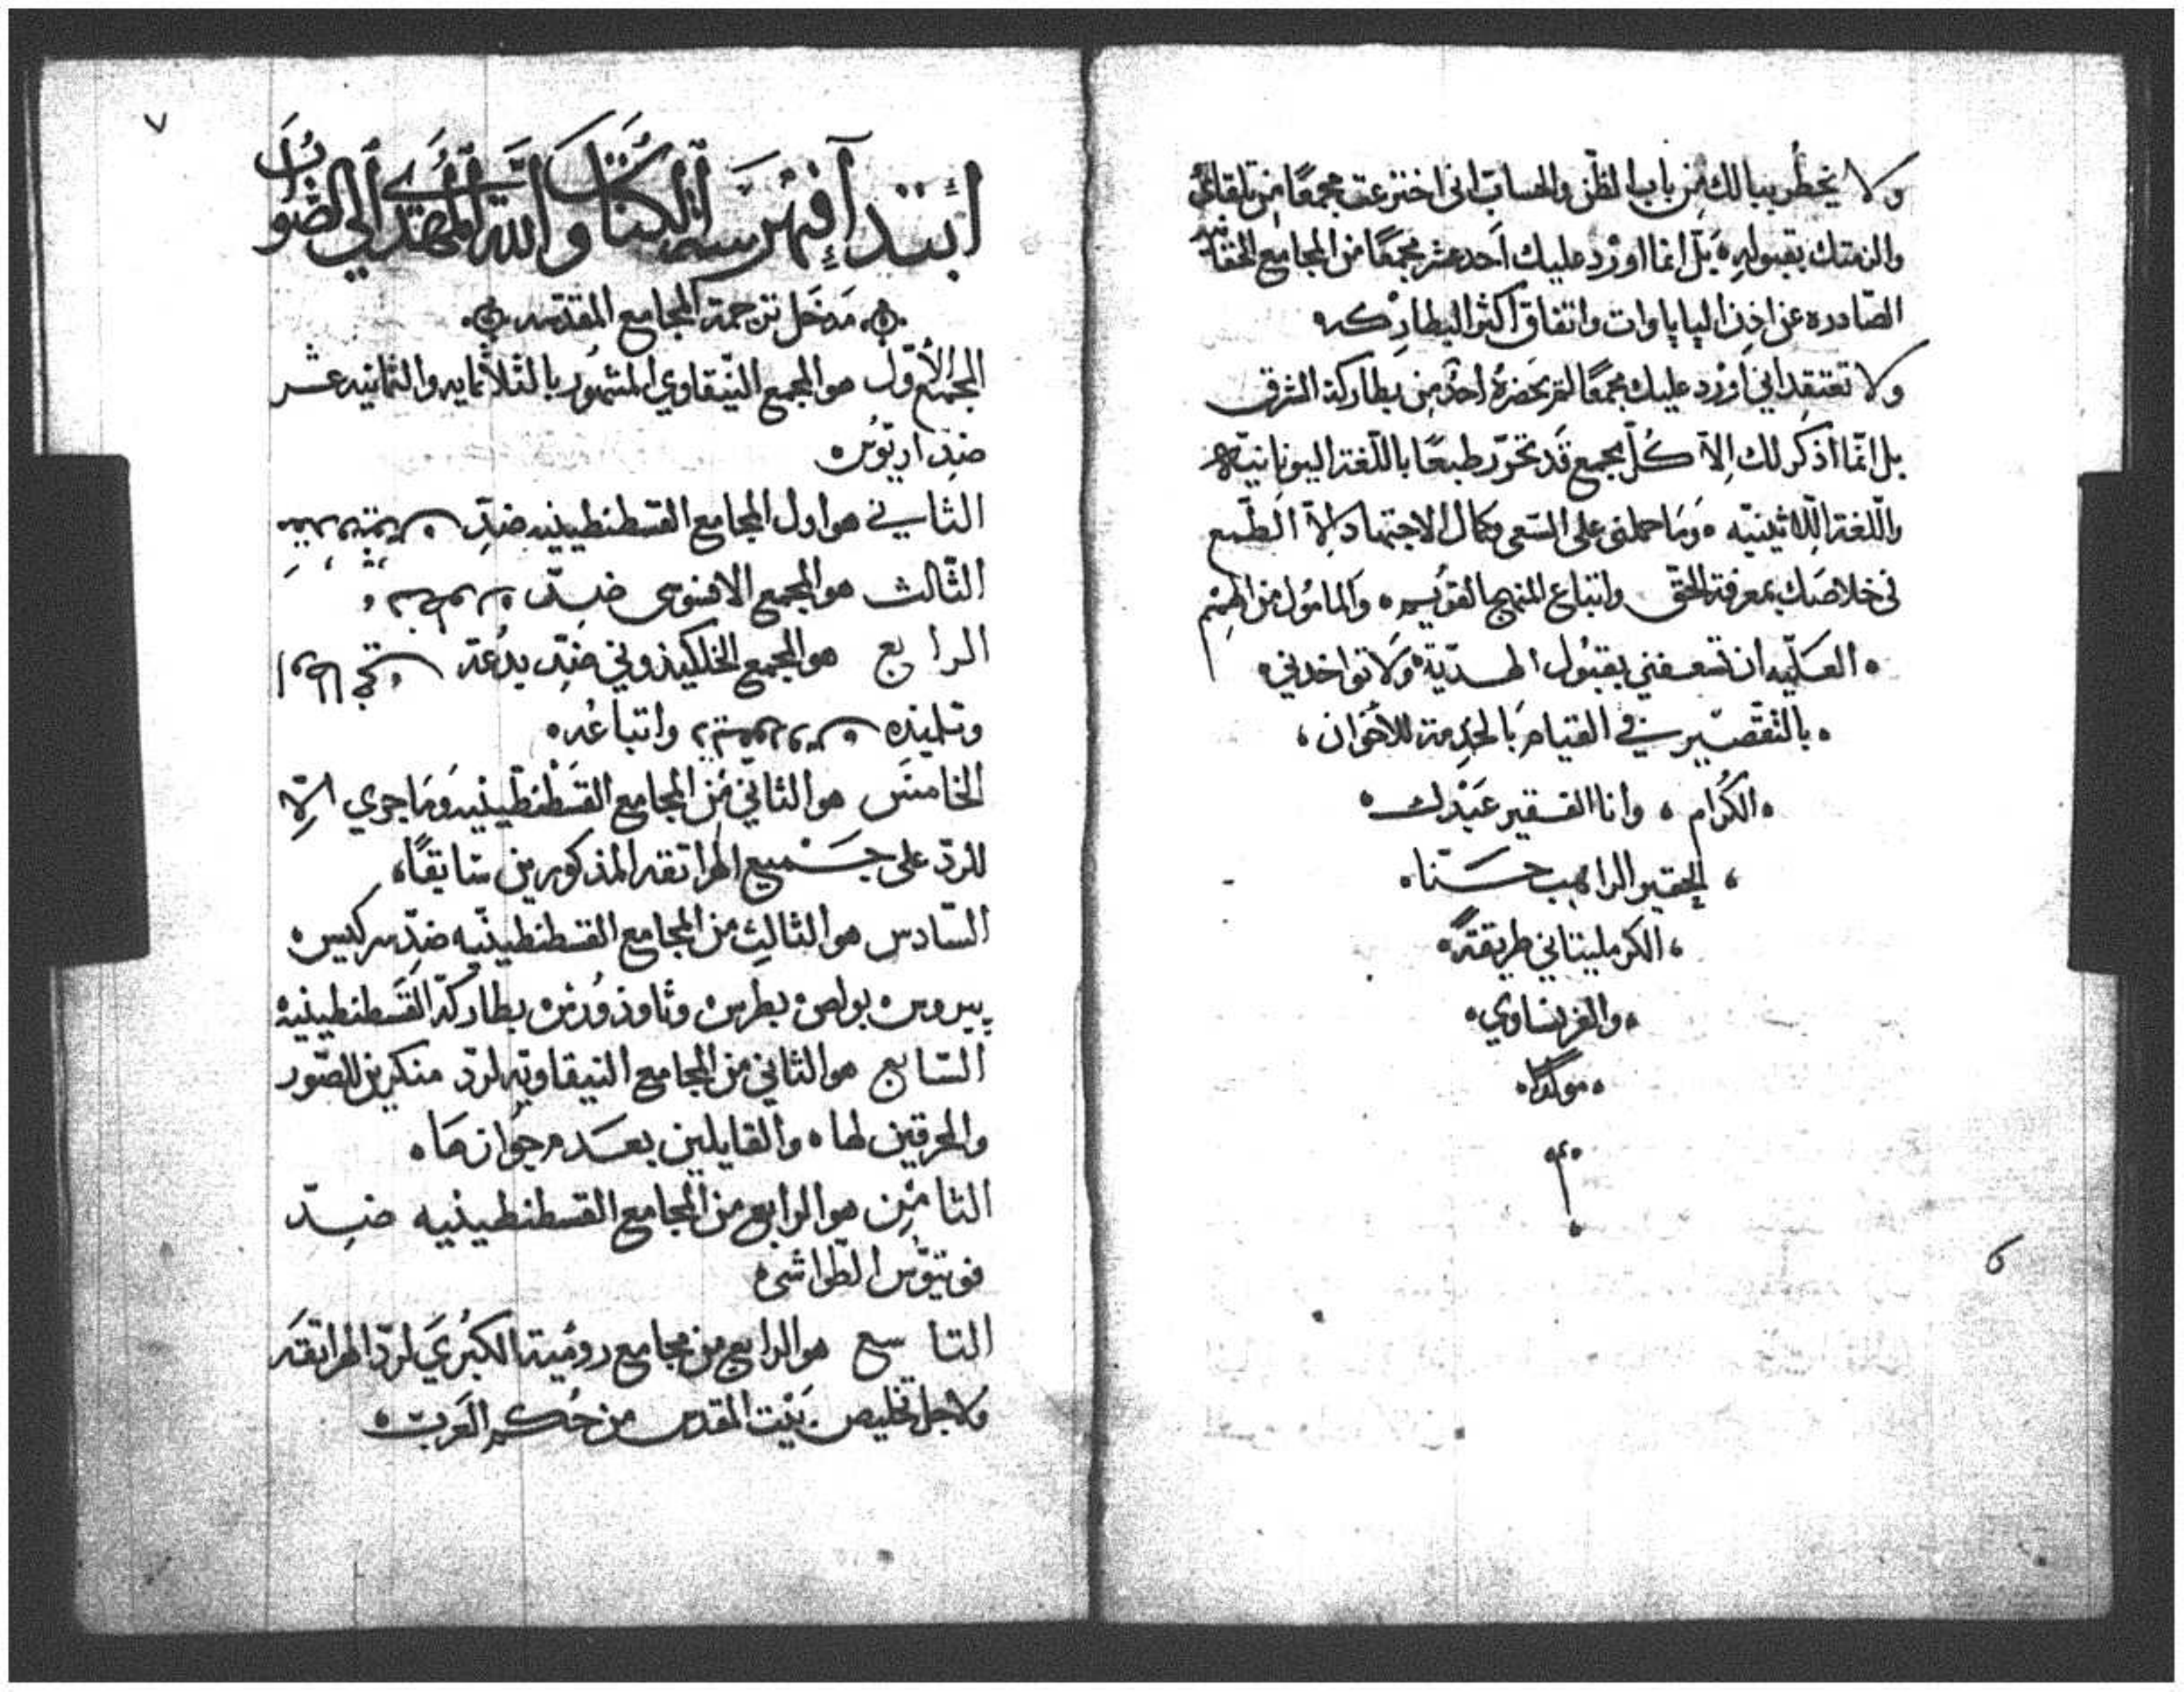 ولا يخطر ببالك من باب الظن والحساب اني اخترعت مجمعًا من تلقائي
والزمتك بقبوله بل انما اورد عليك احد عشر مجمعًا من المجامع
الصادره عن اذن الپاپاوات واتفاق اكثر البطاركه
ولا تعتقد اني اورد عليك مجمعًا لم يحضره احد من بطاركة الشرق
بل انما اذكر لك الا كل مجمع قد تحرّر طبعًا باللغة اليونانيّة
واللغة اللاثينيّه وما حملني على السعي وكمال الاجتهاد الا الطمع
في خلاصك بمعرفة الحق واتباع المنهج القويم والمامول من الهمم
العليّه ان تسعفني بقبول الهديّة ولا تواخدني
بالتقصير في القيام بالخدمة للاخوان
الكرام وانا الفقير عبدك
الحقير الراهب حنا
الكرمليتاني طريقةً
والفرنساوي
مولدًا
٦
٧
ابتدآ فهرسة الكتاب والله المهدي الى الصواب
مدخل ترجمة المجامع المقدسه
المجمع الاول هو المجمع النيقاوي المشهور بالثلاثمايه والثمانيه عشر
ضد اريوس
الثاني هو اول المجامع القسطنطينيه ضدّ
الثالث هو المجمع الافسوسى ضدّ
الرابع هو المجمع الخلكيذوني ضدّ بدعة
وتلميذه واتباعه
الخامس هو الثاني من المجامع القسطنطينيه وما جري الّا
للردّ على جميع الهراتقه المذكورين سابقًا
السادس هو الثالث من المجامع القسطنطينيّه ضدّ سركيس
پيروس بولص بطرس وثاوذورس بطاركة القسطنطينيه
السابع هو الثاني من المجامع النيقاويّه لردّ منكرين الصور
والمحرقين لها والقايلين بعدم جوازها
الثامن هو الرابع من المجامع القسطنطينيه ضدّ
فوتيوس الطواشي
التاسع هو الرابع من مجامع رومية الكبرى لردّ الهراتقه
ولاجل تخليص بيت المقدس من حكم العرب